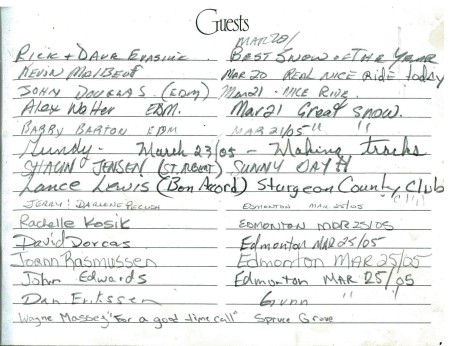 Guests
MAR 20/
RICK + DAVE BEST SNOW OF THE YEAR
KEVIN MAR 20 REAL NICE RIDE today
JOHN DOUGLAS (EDM) Mar 21 - NICE RIDE.
Alex Walter EDM. Mar 21 Great SNOW.
BARRY BARTON EDM MAR 21/05 " "
Mundy - March 23/05 - Making tracks
SHAUN JENSEN (ST. ALBERT) SUNNY DAY !!
Lance Lewis (Bon Acord) Sturgeon County Club
JERRY & DARLENE EDMONTON MAR 25/05
Rachelle Kosik EDMONTON MAR 25/05
David Dorcas Edmonton MAR 25/05
Joann Rasmussen Edmonton MAR 25/05
John Edwards Edmonton MAR 25/05
Dan Erikssen Gunn " "
Wayne Massey "For a good time call" Spruce Grove